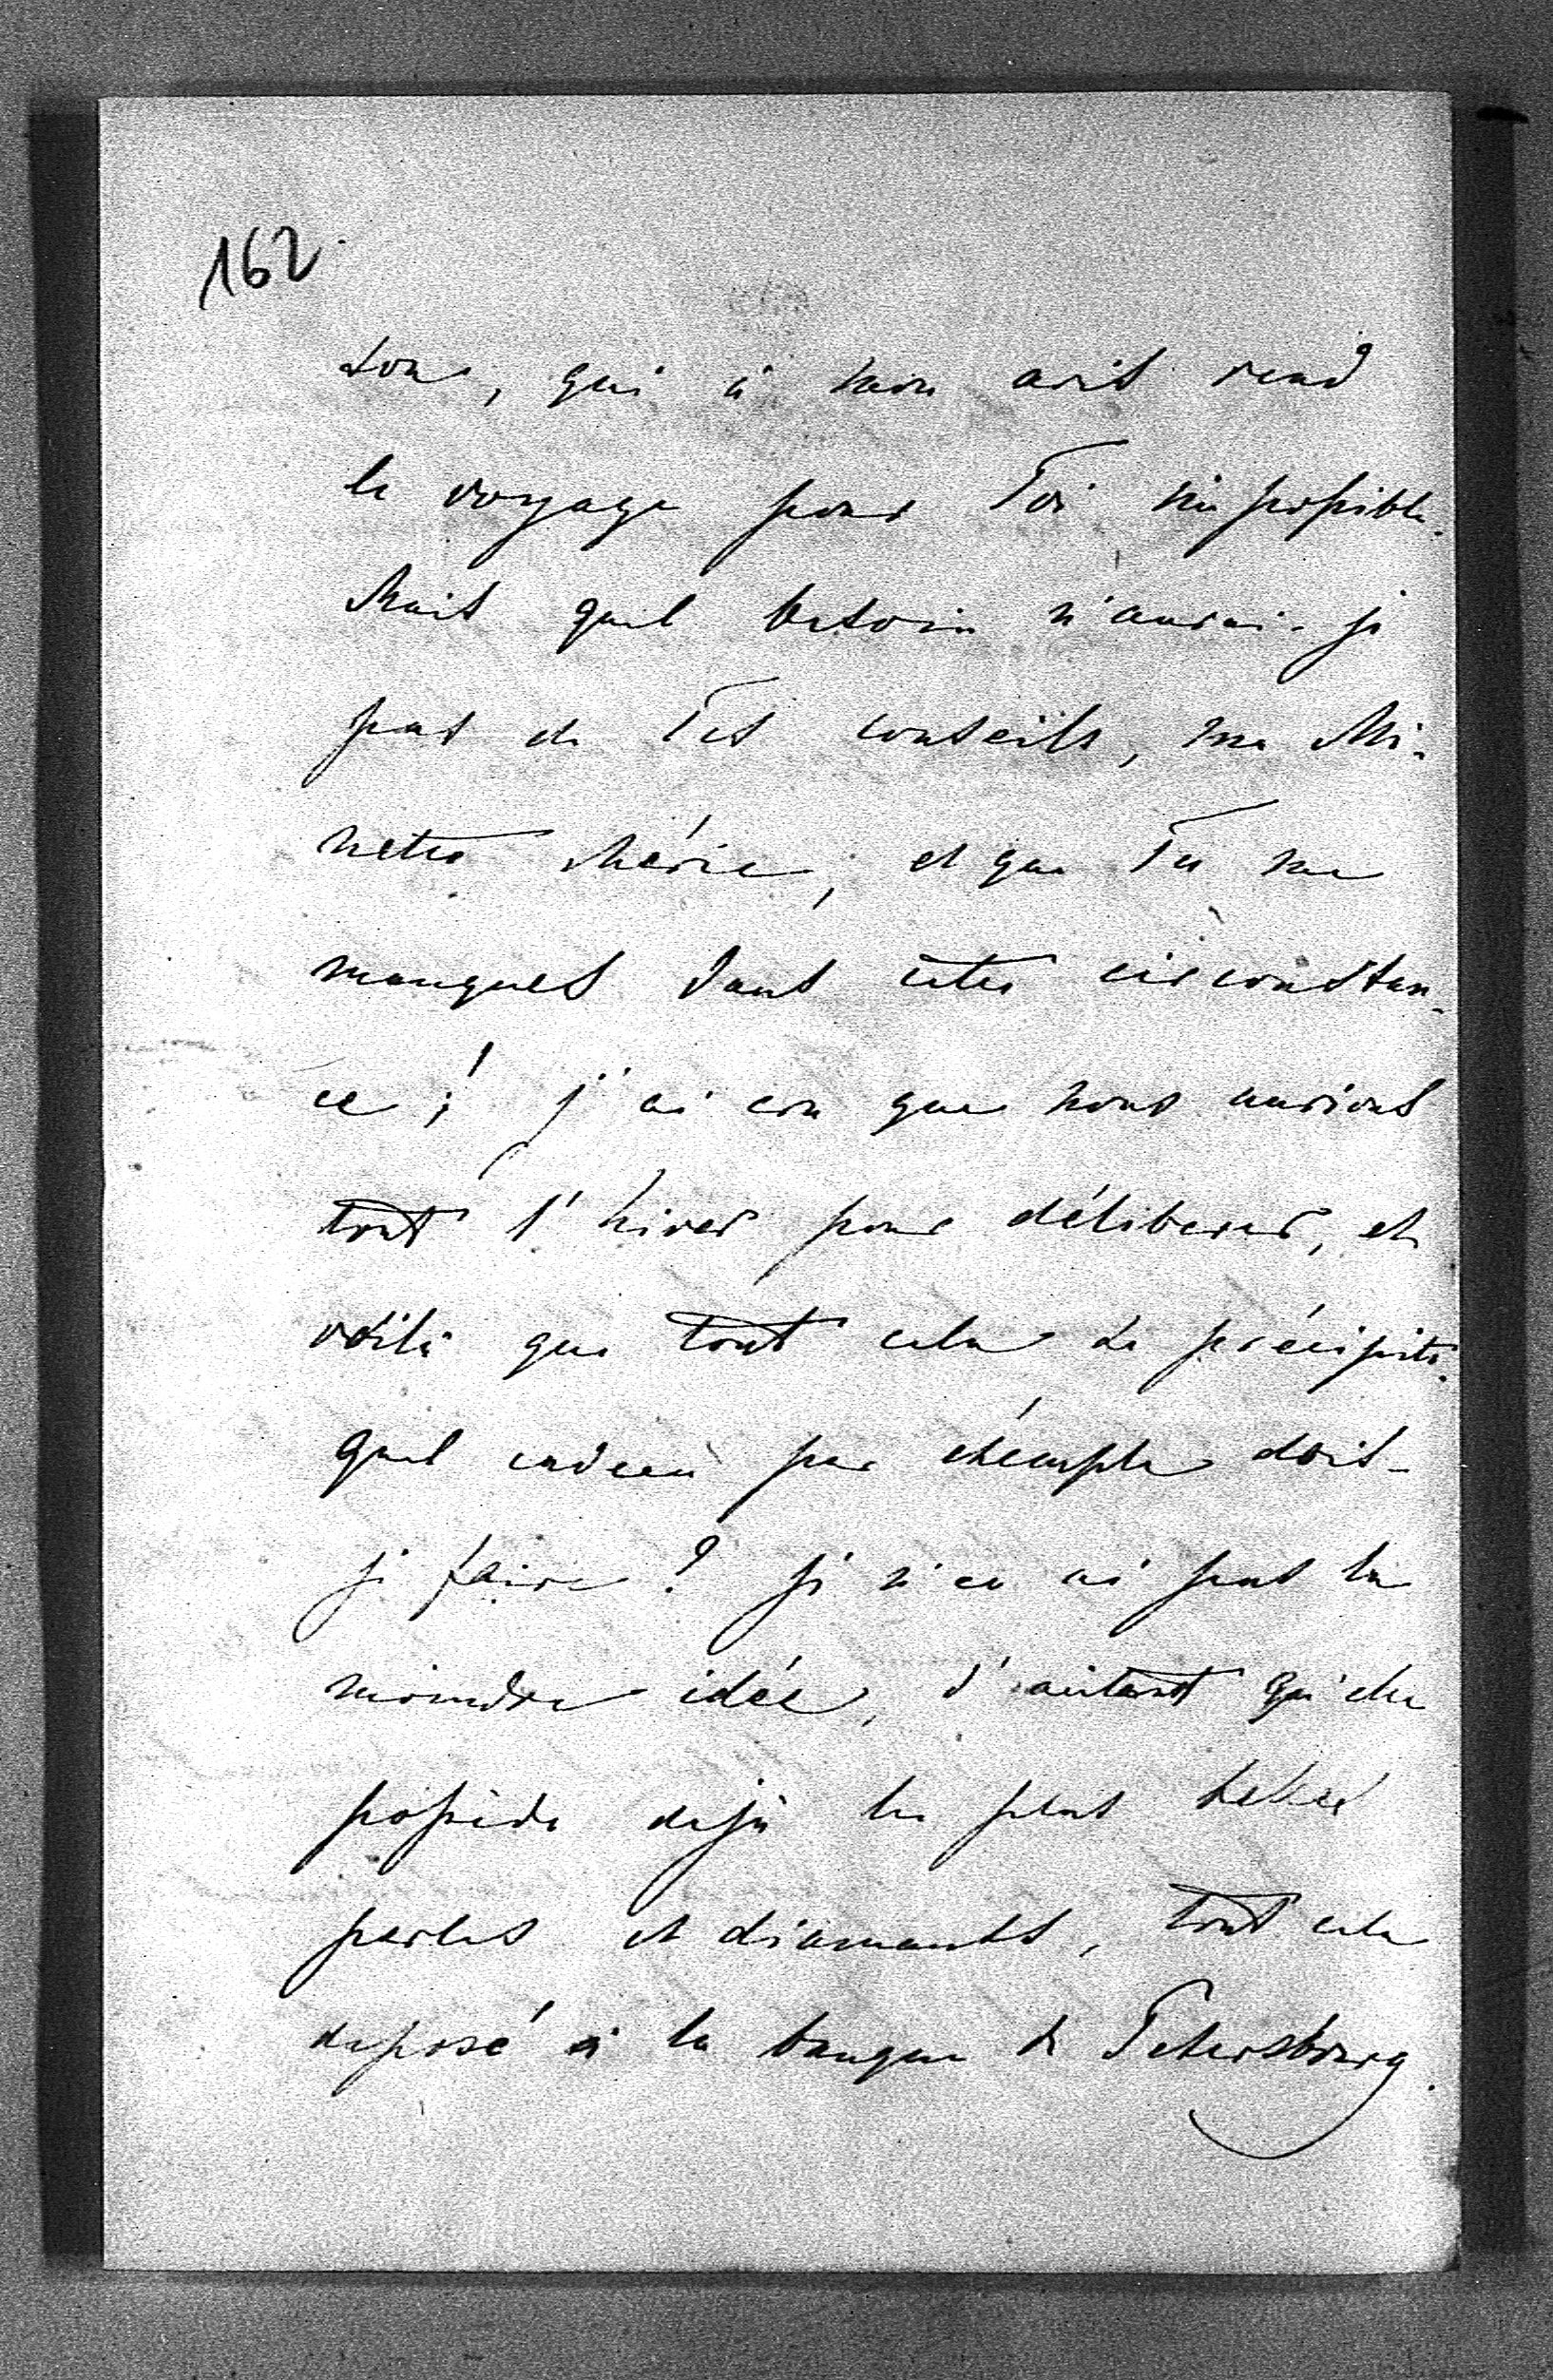 162.
son, qui à mon avis rend
le voyage pour Toi impossible.
Mais quel besoin n'aurai-je
pas de Tes conseils, ma Mi-
nette chérie, et que Tu me
manques dans cette circonstan-
ce! j'ai cru que nous aurions
tout l'hiver pour déliberer, et
voilà que tout cela se précipite.
quel cadeau par éxemple dois-
je faire? je n'en ai pas la
moindre idée, d'autant qu'elle
possède déjà les plus belles
perles et diamants, tout cela
deposé à la banque de Petersbourg.